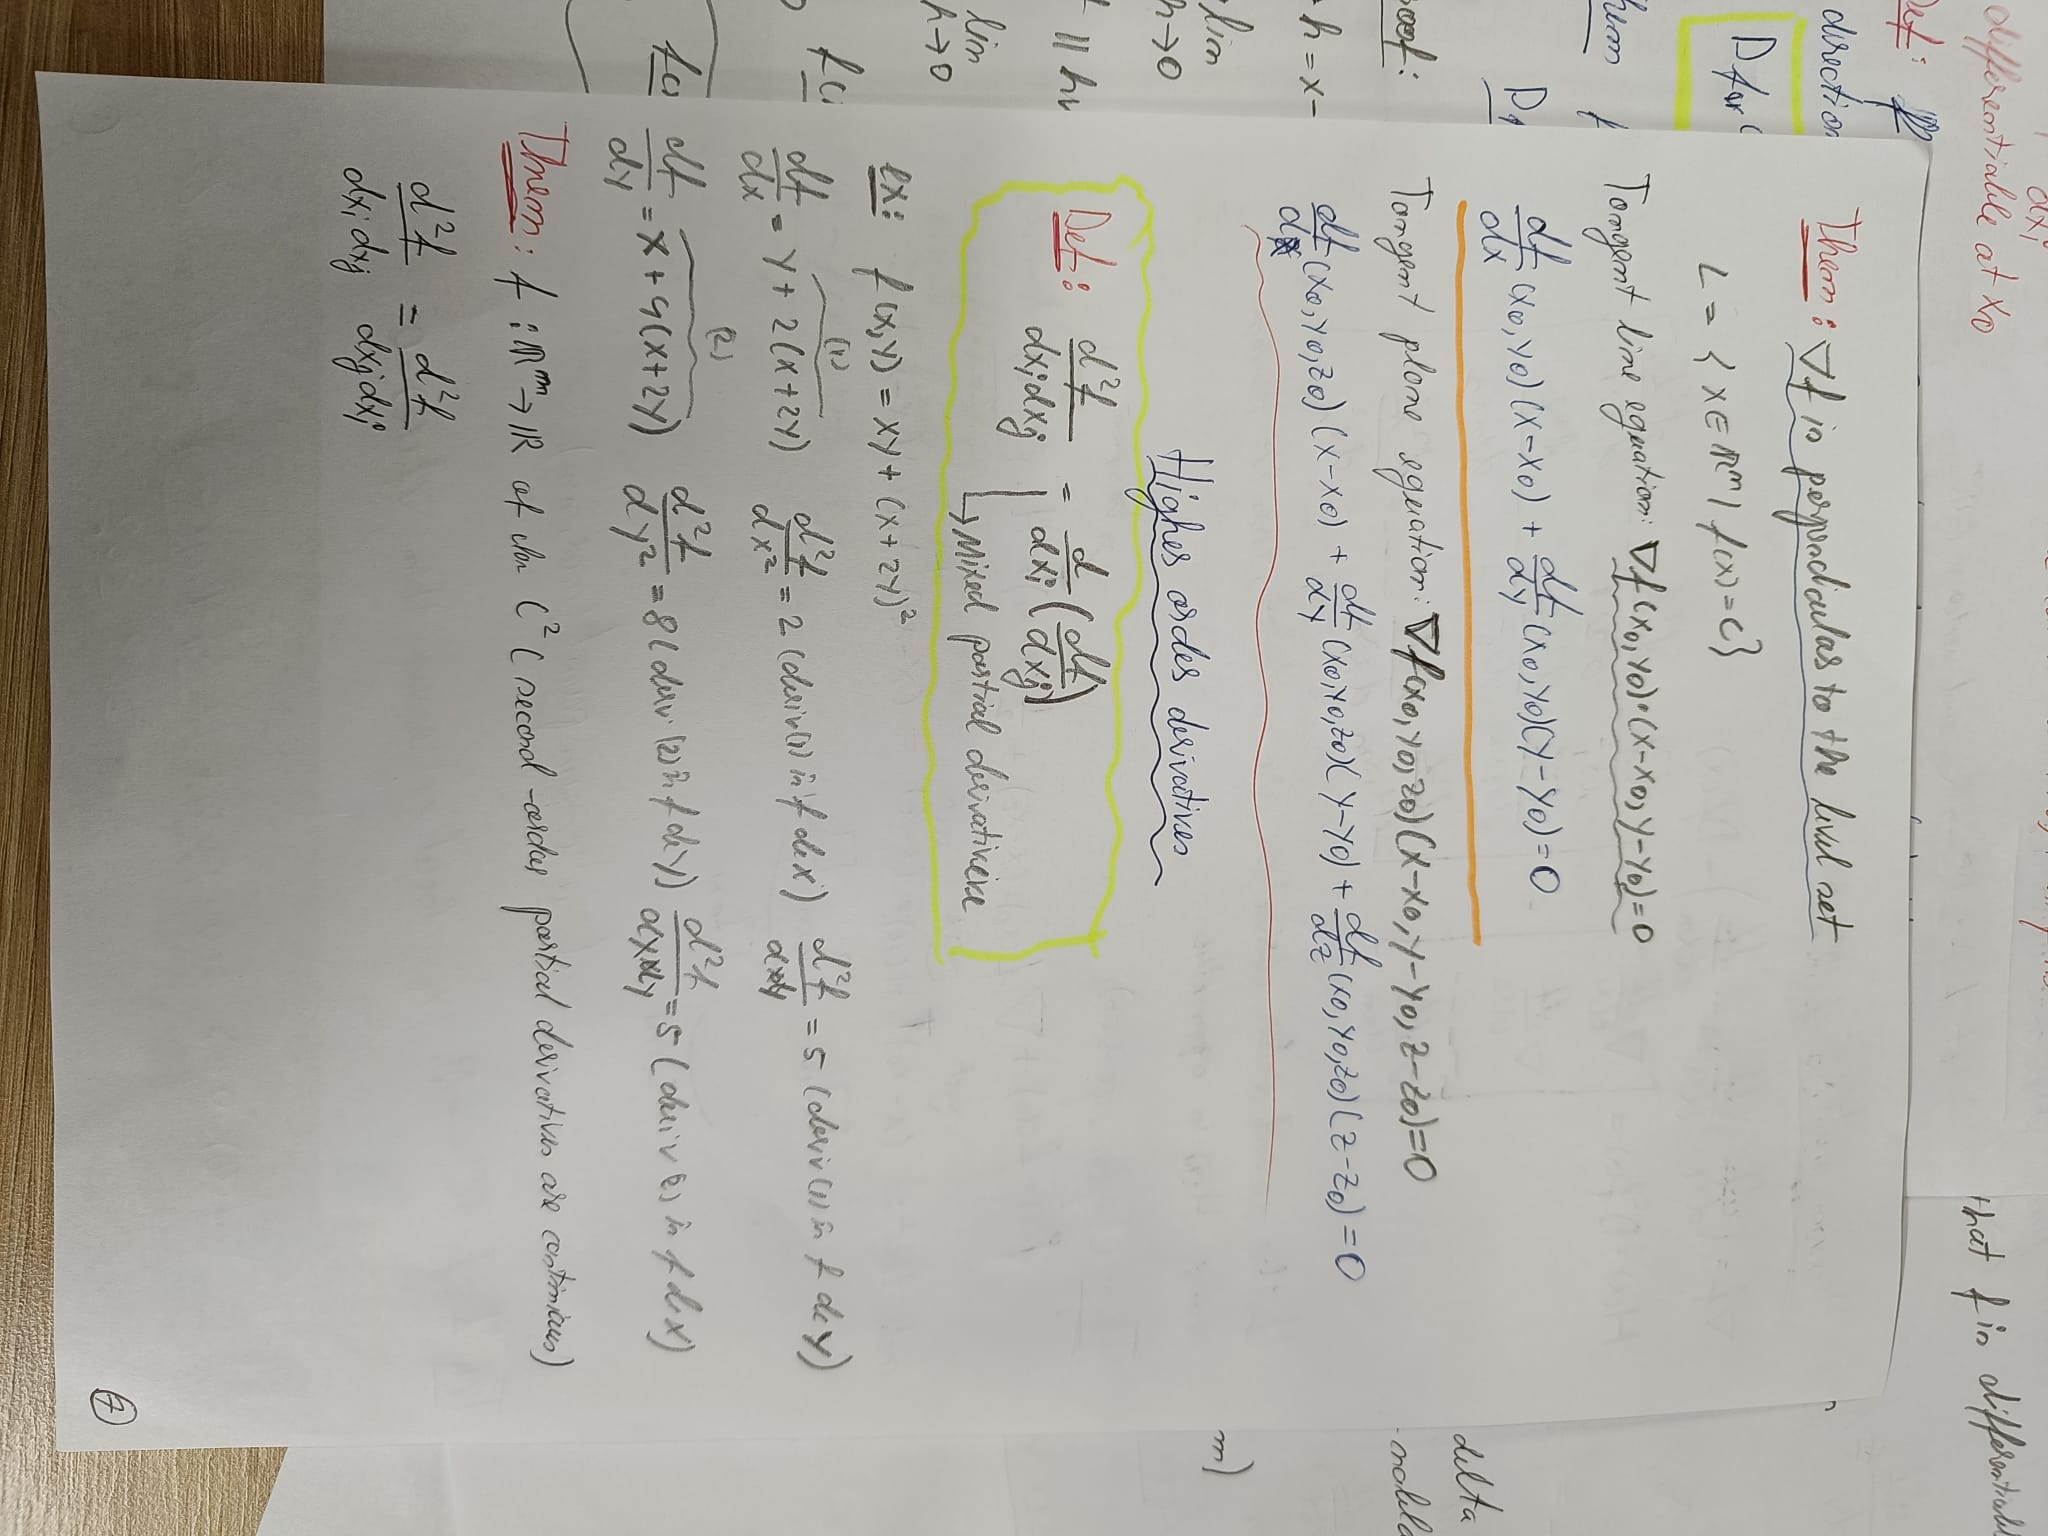 dxi
differentiable at x0
that f is differentiabl
Def:
direction
D for
hem f
oof:
h = x-
lim
h→0
lim
h→0
delta
m)
Them: ∇f is perpendicular to the level set
L = { x∈ℝᵐ | f(x)=C}
Tangent line equation: ∇f(x0,y0)•(x-x0, y-y0)=0
df/dx (x0,y0)(x-x0) + df/dy (x0,y0)(y-y0)=0
Tangent plane equation: ∇f(x0,y0,z0)(x-x0,y-y0,z-z0)=0
df/dx (x0,y0,z0)(x-x0) + df/dy (x0,y0,z0)(y-y0) + df/dz (x0,y0,z0)(z-z0)=0
Higher order derivatives
Def: d²f/dxidxj = d/dxi (df/dxj)
↳ Mixed partial
ex: f(x,y) = xy + (x+2y)²
(1)
df/dx = y + 2(x+2y) d²f/dx² = 2 (deriv (1) în f de x) d²f/dxdy = 5 (deriv (1) în f de y)
(2)
df/dy = x + 4(x+2y) d²f/dy² = 8 (deriv (2) în f de y) d²f/dydx = 5 (deriv (2) în f de x)
Threm: f : ℝᵐ → ℝ of C² (second-order partial derivatives are continious)
d²f/dxidxj = d²f/dxjdxi
7